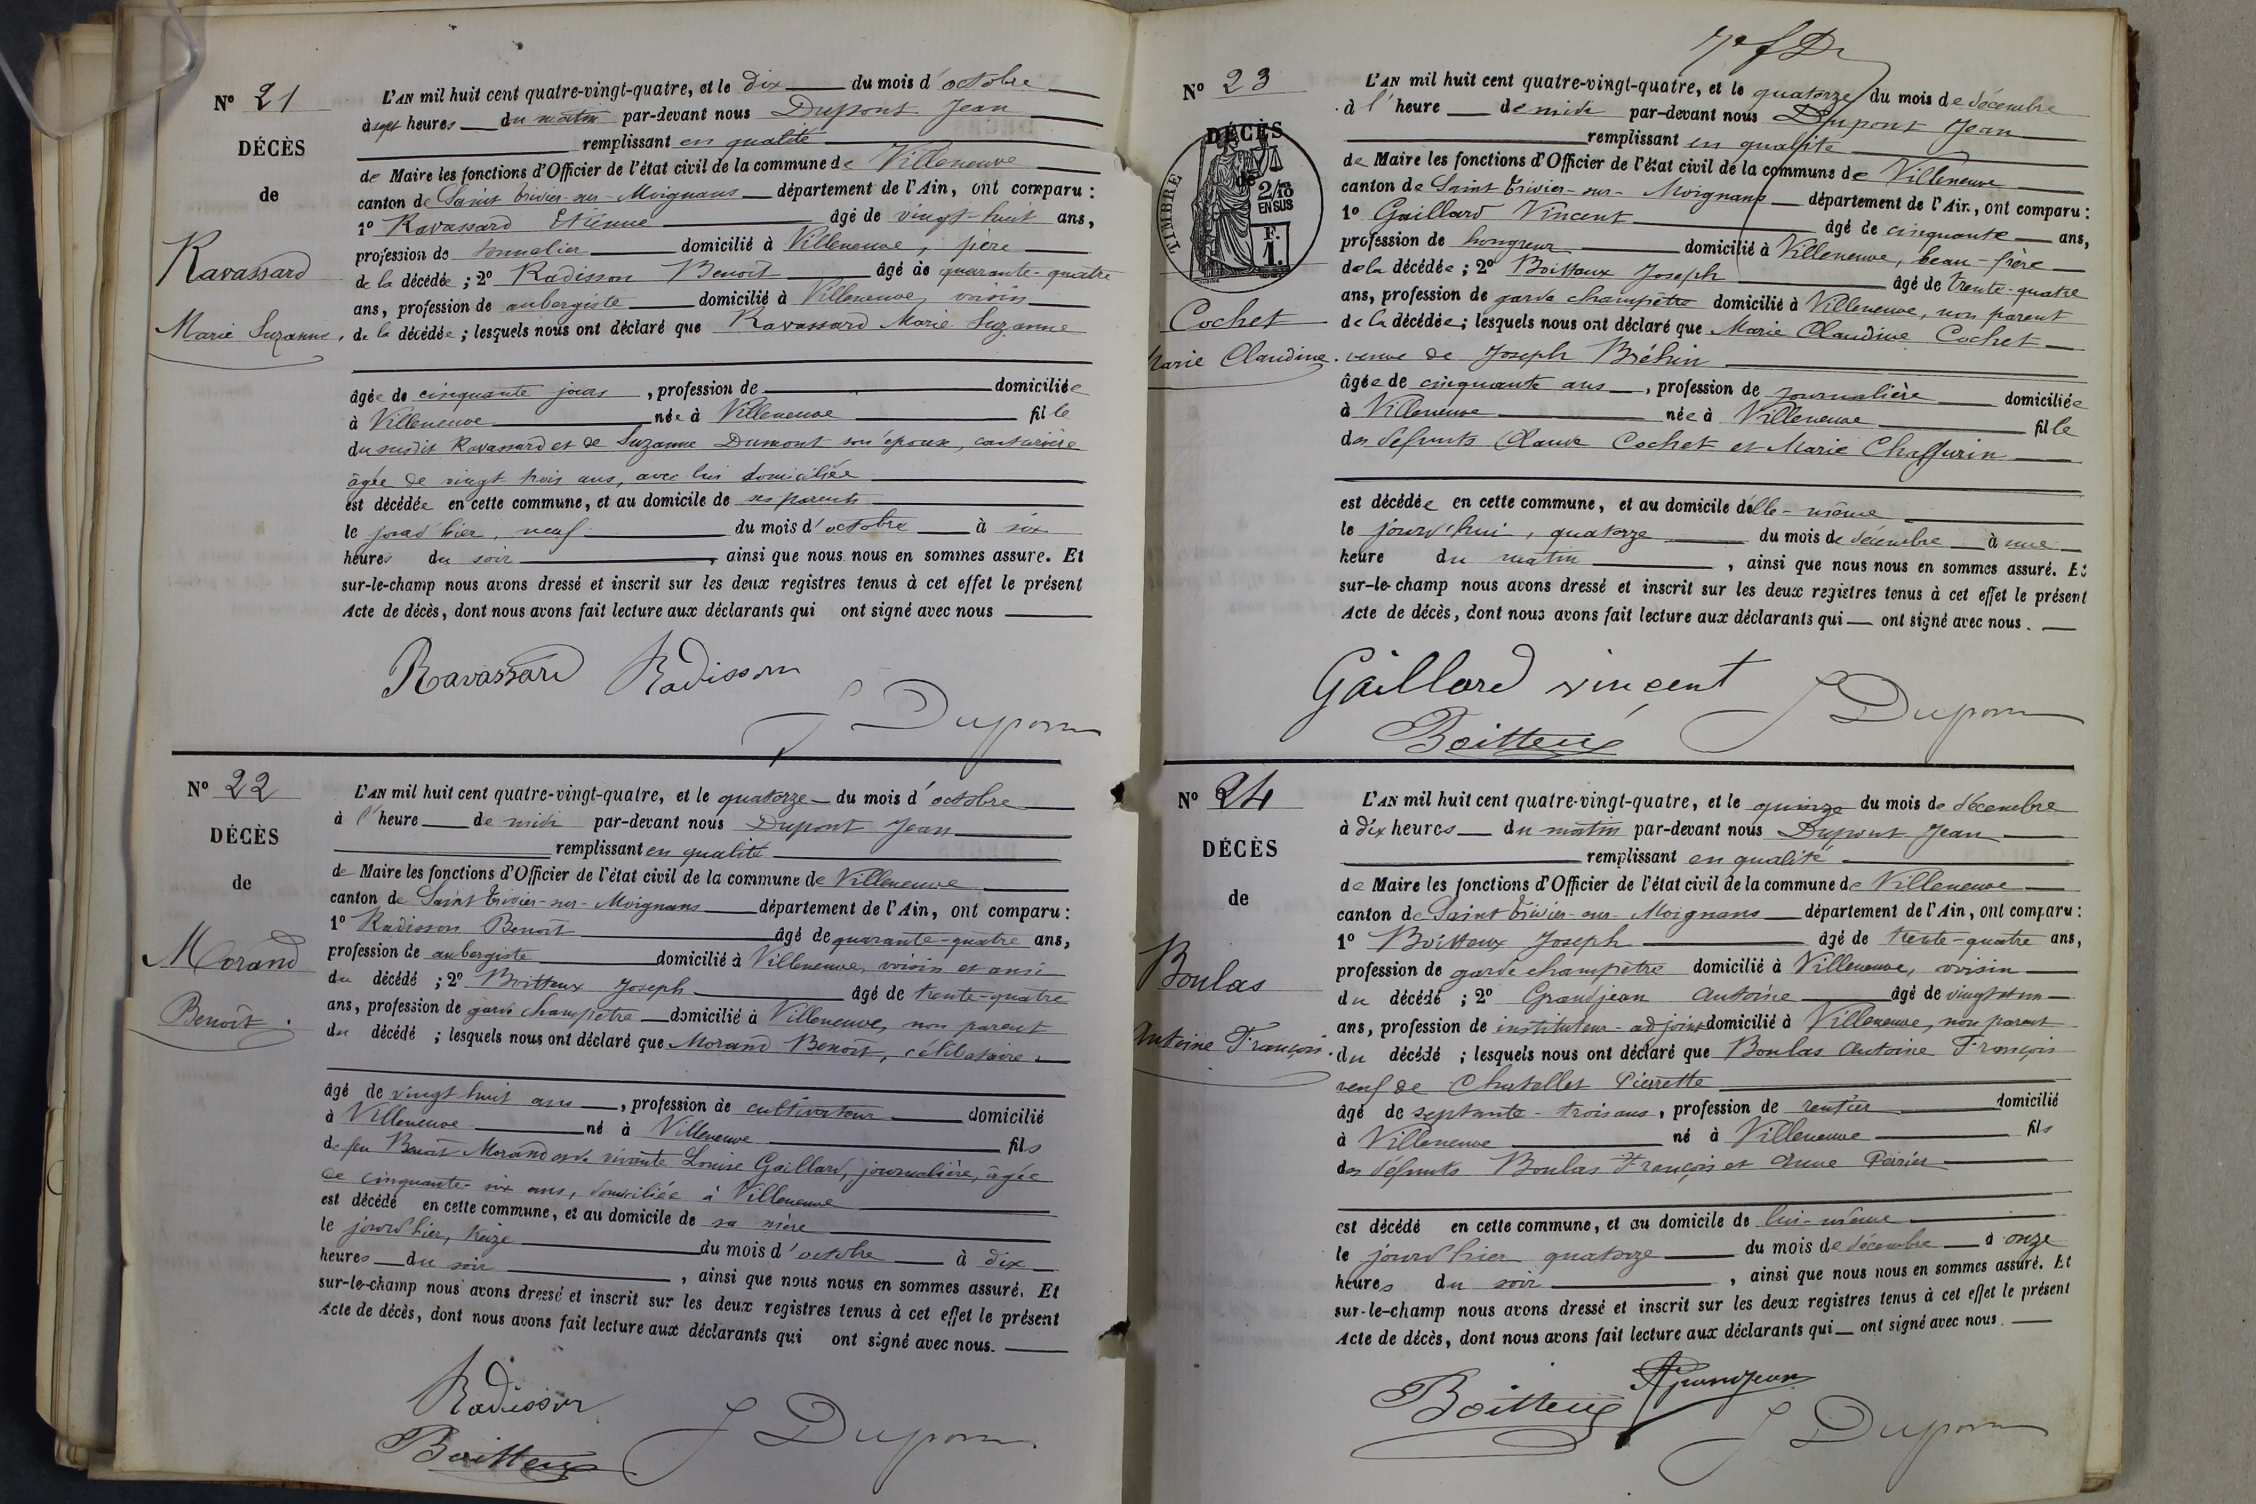 Nº 21
DÉCÈS
de
Ravassard
Marie Suzanne.
L'AN mil huit cent quatre-vingt-quatre, et le dix du mois d'octobre
à sept heures du matin par-devant nous Dupont Jean
remplissant en qualité
de Maire les fonctions d'Officier de l'état civil de la commune de Villeneuve
canton de Saint Trivier-sur-Moignans département de l'Ain, ont comparu :
1º Ravassard Etienne âgé de vingt-huit ans,
profession de tonnelier domicilié à Villeneuve, père
de la décédée ; 2º Radisson Benoît âgé de quarante-quatre
ans, profession de aubergiste domicilié à Villeneuve, voisin
de la décédée ; lesquels nous ont déclaré que Ravassard Marie Suzanne
âgée de cinquante jours , profession de domiciliée
à Villeneuve née à Villeneuve fille
du susdit Ravassard et de Suzanne Dumont son épouse, couturière
âgée de vingt trois ans, avec lui domiciliée
est décédée en cette commune, et au domicile de ses parents
le jourd'hier, neuf du mois d'octobre à six
heures du soir , ainsi que nous nous en sommes assuré. Et
sur-le-champ nous avons dressé et inscrit sur les deux registres tenus à cet effet le présent
Acte de décès, dont nous avons fait lecture aux déclarants qui ont signé avec nous
Ravassard Radisson
J Dupont
Nº 22
DÉCÈS
de
Morand
Benoît.
L'AN mil huit cent quatre-vingt-quatre, et le quatorze du mois d'octobre
à l'heure de midi par-devant nous Dupont Jean
remplissant en qualité
de Maire les fonctions d'Officier de l'état civil de la commune de Villeneuve
canton de Saint Trivier-sur-Moignans département de l'Ain, ont comparu :
1º Radisson Benoît âgé de quarante-quatre ans,
profession de aubergiste domicilié à Villeneuve, voisin et ami
du décédé ; 2º Boitteux Joseph âgé de trente-quatre
ans, profession de garde champêtre domicilié à Villeneuve, non parent
du décédé ; lesquels nous ont déclaré que Morand Benoît, célibataire
âgé de vingt huit ans , profession de cultivateur domicilié
à Villeneuve né à Villeneuve fils
de feu Benoît Morand et de vivante Louise Gaillard, journalière, âgée
de cinquante-six ans, domiciliée à Villeneuve
est décédé en cette commune, et au domicile de sa mère
le jourd'hier, treize du mois d'octobre à dix
heures du soir , ainsi que nous nous en sommes assuré. Et
sur-le-champ nous avons dressé et inscrit sur les deux registres tenus à cet effet le présent
Acte de décès, dont nous avons fait lecture aux déclarants qui ont signé avec nous.
Radisson
Boitteux J Dupont
Nº 23
DÉCÈS
de
TIMBRE
2/10
EN SUS
F.
1.
Cochet
Marie Claudine.
L'AN mil huit cent quatre-vingt-quatre, et le quatorze du mois de décembre
à l'heure de midi par-devant nous Dupont Jean
remplissant en qualité
de Maire les fonctions d'Officier de l'état civil de la commune de Villeneuve
canton de Saint Trivier-sur-Moignans département de l'Ain, ont comparu :
1º Gaillard Vincent âgé de cinquante ans,
profession de hongreur domicilié à Villeneuve, beau-frère
de la décédée ; 2º Boitteux Joseph âgé de trente-quatre
ans, profession de garde champêtre domicilié à Villeneuve, non parent
de la décédée ; lesquels nous ont déclaré que Marie Claudine Cochet
veuve de Joseph Bréhin
âgée de cinquante ans , profession de journalière domiciliée
à Villeneuve née à Villeneuve fille
des défunts Claude Cochet et Marie Chaffurin
est décédée en cette commune, et au domicile d'elle-même
le jourd'hui, quatorze du mois de décembre à une
heure du matin , ainsi que nous nous en sommes assuré. Et
sur-le-champ nous avons dressé et inscrit sur les deux registres tenus à cet effet le présent
Acte de décès, dont nous avons fait lecture aux déclarants qui ont signé avec nous.
Gaillard vincent J Dupont
Boitteux
Nº 24
DÉCÈS
de
Boulas
Antoine François.
L'AN mil huit cent quatre-vingt-quatre, et le quinze du mois de décembre
à dix heures du matin par-devant nous Dupont Jean
remplissant en qualité
de Maire les fonctions d'Officier de l'état civil de la commune de Villeneuve
canton de Saint Trivier-sur-Moignans département de l'Ain, ont comparu :
1º Boitteux Joseph âgé de trente-quatre ans,
profession de garde champêtre domicilié à Villeneuve, voisin
du décédé ; 2º Grandjean Antoine âgé de vingt et un
ans, profession de instituteur-adjoint domicilié à Villeneuve, non parent
du décédé ; lesquels nous ont déclaré que Boulas Antoine François
veuf de Chatellet Pierrette
âgé de septante-trois ans, profession de rentier domicilié
à Villeneuve né à Villeneuve fils
des défunts Boulas François et Anne Périer
est décédé en cette commune, et au domicile de lui-même
le jourd'hier quatorze du mois de décembre à onze
heures du soir , ainsi que nous nous en sommes assuré. Et
sur-le-champ nous avons dressé et inscrit sur les deux registres tenus à cet effet le présent
Acte de décès, dont nous avons fait lecture aux déclarants qui ont signé avec nous.
AGrandjean
Boitteux
J Dupont